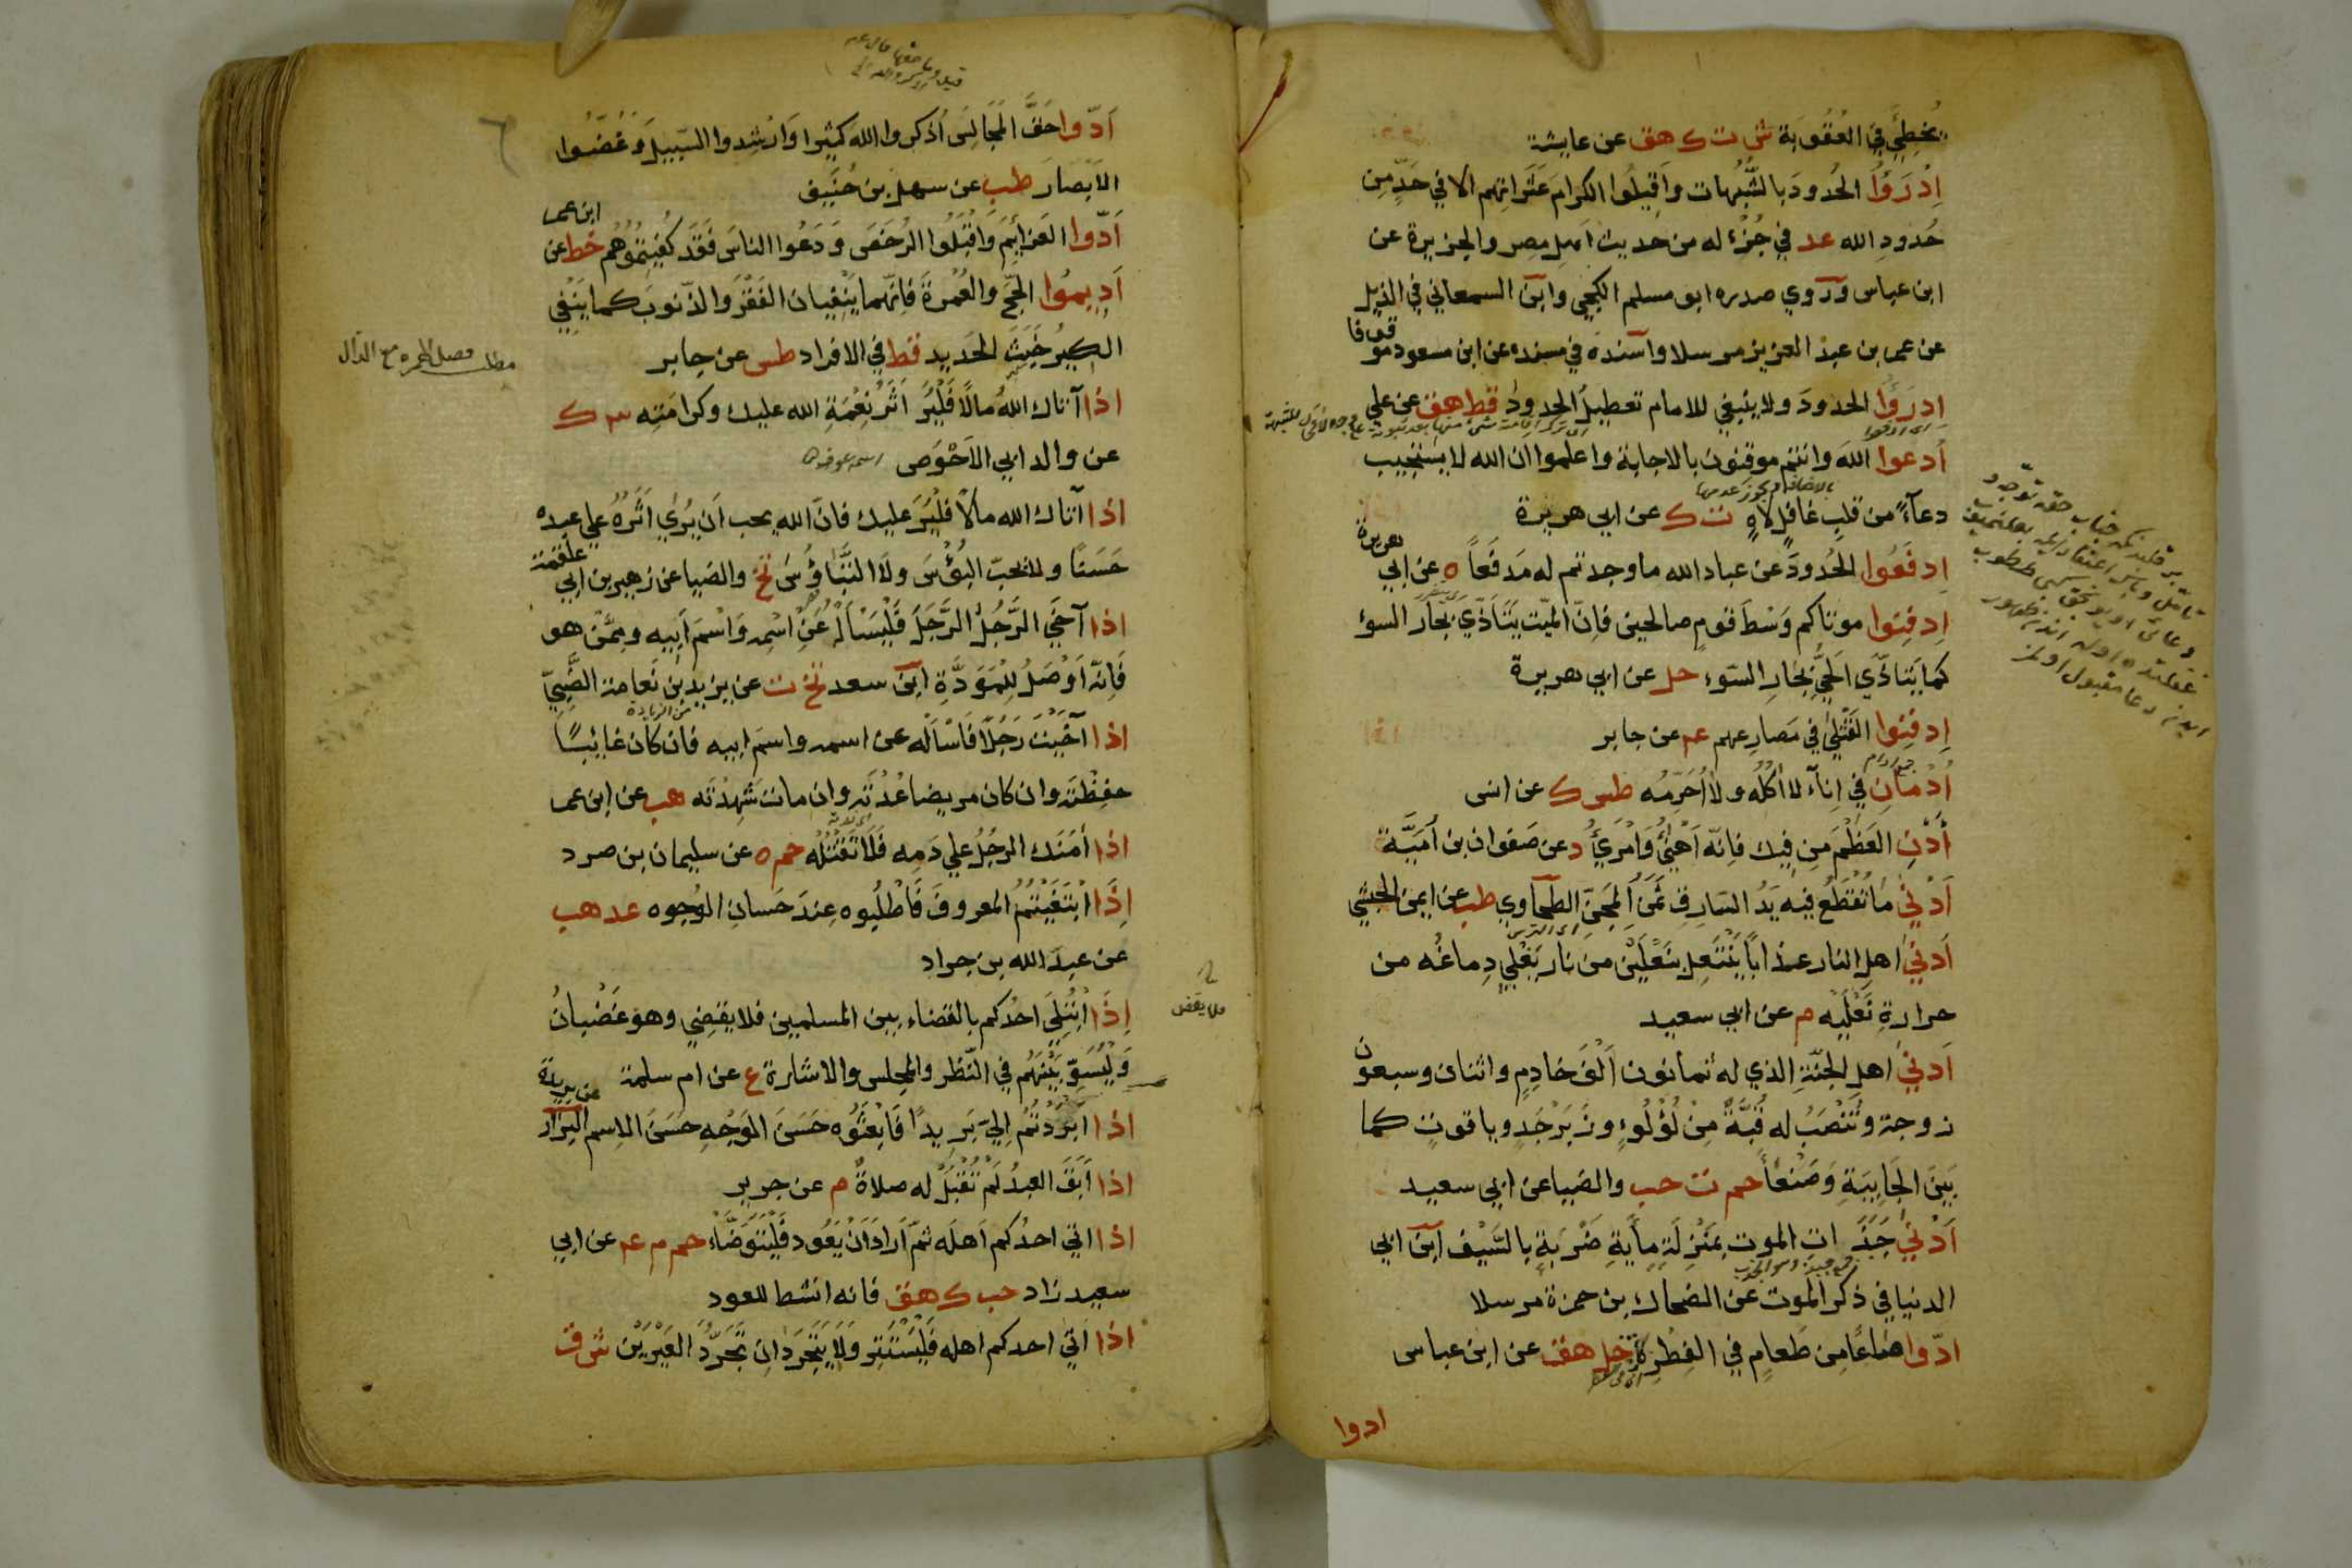 يُخطِئَ في العُقُوبَة ش ت ك هق عن عايشة
اِدْرَؤُا الحُدودَ بالشُّبُهات واَقِيلُوا الكرامَ عَثَراتِهم الا في حَدٍّ مِن
حُدودِ الله عد في جُزْء له من حديث اهلِ مِصر والجزيرة عن
ابن عباس ورَوي صدره ابو مسلم الكجي وابن السمعاني في الذيل
عن عمر بن عبد العزيز مرسلا واَسنده في مسنده عن ابن مسعود موقوفا
اِدرَؤُا الحدودَ ولا ينبغي للامام تعطيلُ الحدود قط هق عن علي
اُدعوا اللهَ وانتم موقنون بالاجابة واعلموا ان الله لا يستجيب
دعآءً من قلبٍ غافلٍ لاهٍ ت ك عن ابي هريرة
اِدفَعُوا الحُدودَ عن عباد الله ما وجدتم له مَدفَعاً ه عن ابي هريرة
اِدفِنوا موتاكم وَسْطَ قومٍ صالحين فاِنّ الميّت يَتَاَذَّي بجار السوء
كما يَتَاذّي الحَيُّ بجارِ السّوء حل عن ابي هريرة
اِدفِنوا القَتْلَي في مَصارِعِهم عه عن جابر
اُدْمانِ في اِناءٍ لا اٰكُلُه ولا اُحَرِّمُه طس ك عن انس
اَدْنِ العَظْمَ مِن فِيك فاِنّه اَهْنَئُ وَاَمْرَئُ د عن صَفوان بن اُمَيَّة
اَدْنَي ما تُقْطَعُ فيه يَدُ السّارِقِ ثَمَنُ المِجَنّ الطّحاوي طب عن ايمن الحبشي
اَدنَي اهلِ النار عذاباً يَنْتَعِل بنَعْلَيْن من نار يَغْلِي دِماغُه من
حرارةِ نَعْلَيْه م عن ابي سعيد
اَدنَي اهلِ الجنّةِ الذي له ثمانون اَلْفَ خادِمٍ واثنان وسبعون
زوجة وتُنْصَبُ له قُبَّةٌ مِنْ لُؤْلُوءٍ وزَبَرْجَدٍ وياقوتٍ كما
بَينَ الجَابِيَةِ وَصَنْعَاءَ حم ت حب والضيا عن ابي سعيد
اَدْنَي جَبَذَاتِ الموت بمَنْزِلَةِ مِأيةِ ضَرْبَةٍ بالسَّيْف ابن ابي
الدنيا في ذكر الموت عن الضحاك بن حمزة مرسلا
ادّوا صَاعًا مِن طَعامٍ في الفِطْرِ حل هق عن ابن عباس
ادوا
اَدّوا حَقَّ المَجَالِس اُذكروا الله كثيرا وَارْشِدوا السّبيلَ وَغُضُّوا
الاَبْصَارَ طب عن سهل بن حُنَيف
اَدّوا العَزايِمَ وَاقْبَلُوا الرُخَصَ وَدَعُوا الناسَ فَقَد كُفِيتُمُوهُم خط عن ابن عمر
اَدِيمُوا الحجّ والعُمْرةَ فاِنّهما يَنْفِيان الفَقْرَ والذّنوبَ كما يَنْفِي
الكِيرُ خَبَثَ الحَديد قط في الافراد طس عن جابر
اذا آتاك اللهُ مالًا فَلْيُرَ اَثَرُ نِعْمَةِ الله عليك وكرامَتِه ٣ ك
عن والد ابي الاَحْوَص
اذا آتاك الله مالًا فلْيُرَ عليك فانّ الله يحب اَن يُرَي اَثَرُهُ علي عبده
حَسَنًا ولا يحبّ البُؤْسَ ولَا التَبَاؤُسَ تخ والضيا عن زهير بن ابي علقمة
اذا آخَي الرَّجُلُ الرَّجُلَ فَلْيَسْاَلْهُ عَنِ اسْمِه وَاسْمِ اَبِيه ومِمَّنْ هو
فَاِنّه اَوْصَلُ لِلْمَوَدَّةِ ابن سعد تخ ت عن يزيد بن نَعامة الضَّبيّ
اذا آخَيْتَ رَجُلًا فَاسْاَلْه عن اسمه واسم ابيه فان كان غايبًا
حفِظْتَه وان كان مريضا عُدْتَه وان مات شَهِدْتَه هب عن ابن عمر
اذا اَمَنَك الرجُلُ علي دَمِه فَلَا تَقْتُلْه حم ه عن سليمان بن صرد
اِذَا ابْتَغَيْتُمُ المعروفَ فَاطْلُبُوه عِندَ حَسانِ الوُجوه عد هب
عن عبد الله بن جراد
اِذَا ابْتُلِيَ احدُكم بالقضاء بين المسلمين فلا يقضِي وهو غَضْبانُ
فلا يقض
وَلْيُسَوِّ بَيْنَهُم في النّظر والمجلس والاشارة ع عن ام سلمة
اذا ابْرَدْتُمْ اِلَيَّ بَرِيدًا فَابْعَثُوه حَسَنَ الوَجْهِ حَسَنَ الاِسمِ البزار عن بريدة
اذا اَبَقَ العبدُ لَمْ تُقْبَلْ له صلاةٌ م عن جرير
اذا اتَي احدُكم اَهلَه ثمّ اَرادَ اَنْ يَعُود فَلْيَتَوَضَّاْ حم م عه عن ابي
سعيد زاد حب ك هق فانه انشط للعود
اذا اَتَي احدكم اهله فَلْيَسْتَتِر وَلَا يَتَجَرَّدانِ تَجَرُّدَ العَيْرَيْن ش ق